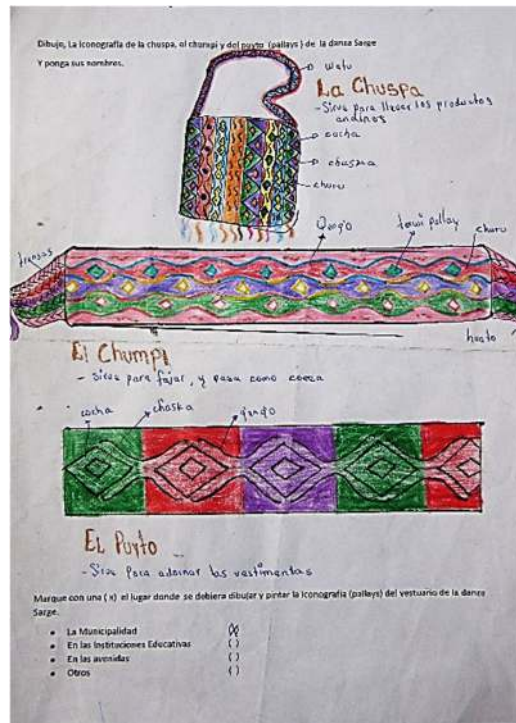 Dibuje, La iconografía de la chuspa, el chumpi y del puyto (pallays) de la danza Sarge
Y ponga sus nombres.
watu
La Chuspa
- Sirve para llevar los productos
andinos
cocha
chaska
churu
Qenqo
tawii pallay
churu
transas
huato
El Chumpi
- sirve para fajar, y pasa como correa
cocha
chaska
q'enq'o
EL Puyto
- Sirve para adornar las vestimentas
Marque con una ( x) el lugar donde se debiera dibujar y pintar la iconografía (pallays) del vestuario de la danza
Sarge.
• La Municipalidad (x)
• En las Instituciones Educativas ( )
• En las avenidas ( )
• Otros ( )